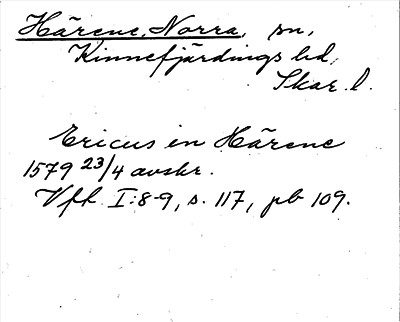 Härene, Norra, sn,
Kinnefjärdings hd,
Skar. l.
Ericus in Härene
1579 23/4 avskr.
Vft I:8-9, s. 117, pb 109.